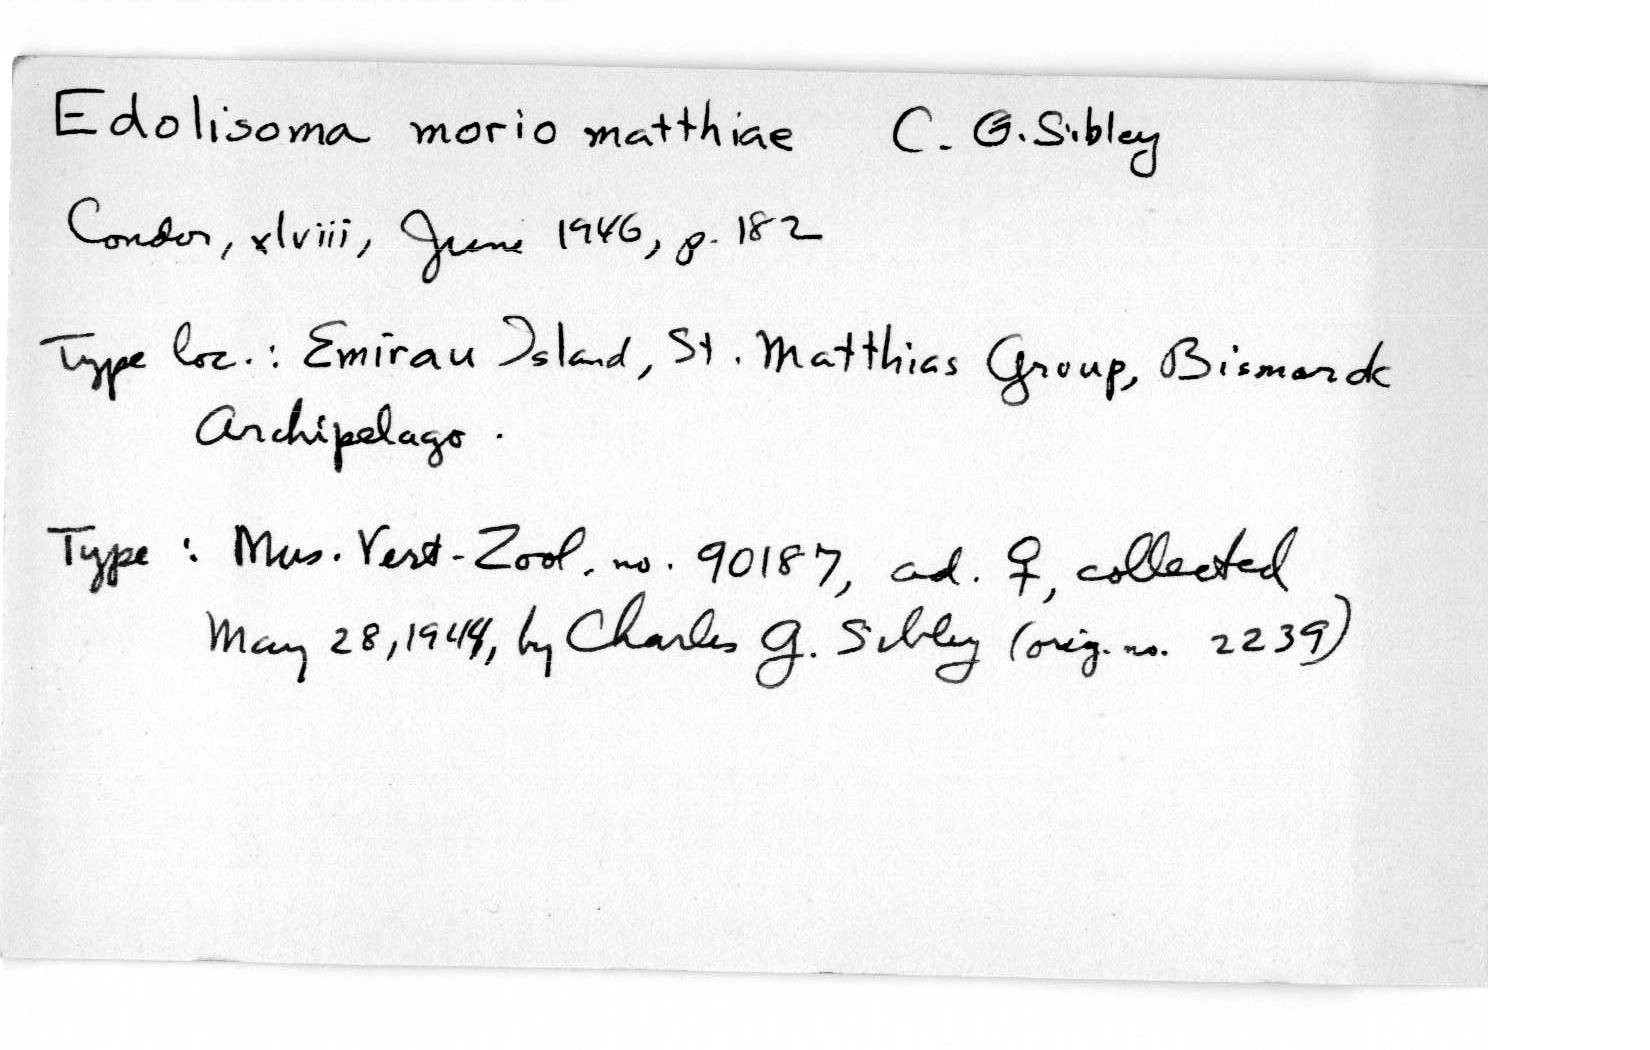 Edolisoma morio matthiae C. G. Sibley
Condor, xlviii, June 1946, p. 182
Type loc.: Emirau Island, St. Matthias Group, Bismarck
Archipelago.
Type: Mus. Vert. Zool. no. 90187, ad. ♀, collected
May 28, 1944, by Charles G. Sibley (orig. no. 2239)